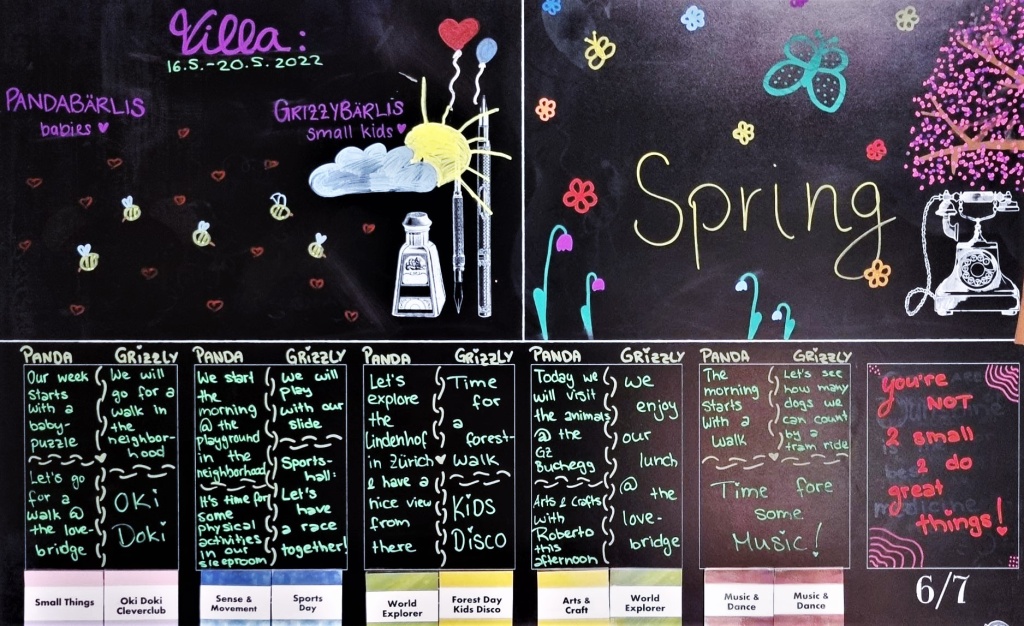 Villa:
16.5.-20.5.2022
PANDABÄRLIS
babies
GRIZZYBÄRLIS
small kids
Spring
PANDA
Our week
starts
with a
baby-
puzzle
Let's go
for a
walk @
the love-
bridge
GRIZZLY
We will
go for a
walk in
the
neighbor-
hood
OKi
Doki
PANDA
We start
the
morning
@ the
playground
in the
neighborhood
It's time for
some
physical
activities
in our
sleeproom
GRIZZLY
We will
play
with our
slide
Sports-
hall:
Let's
have
a race
together!
PANDA
Let's
explore
the
Lindenhof
in Zürich
& have a
nice view
from
there
GRIZZLY
Time
for
a
forest-
walk
KiDS
DiSCO
PANDA
Today we
will visit
the animals
@ the
GZ
Buchegg
Arts & Crafts
with
Roberto
this
afternoon
GRIZZLY
we
enjoy
our
lunch
@ the
love-
bridge
PANDA
The
morning
starts
with a
walk
GRIZZLY
Let's see
how many
dogs we
can count
by a
tram ride
Time fore
some
Music!
you're
NOT
2 small
2 do
great
things!
Small Things
Oki Doki
Cleverclub
Sense &
Movement
Sports
Day
World
Explorer
Forest Day
Kids Disco
Arts &
Craft
World
Explorer
Music &
Dance
Music &
Dance
6/7